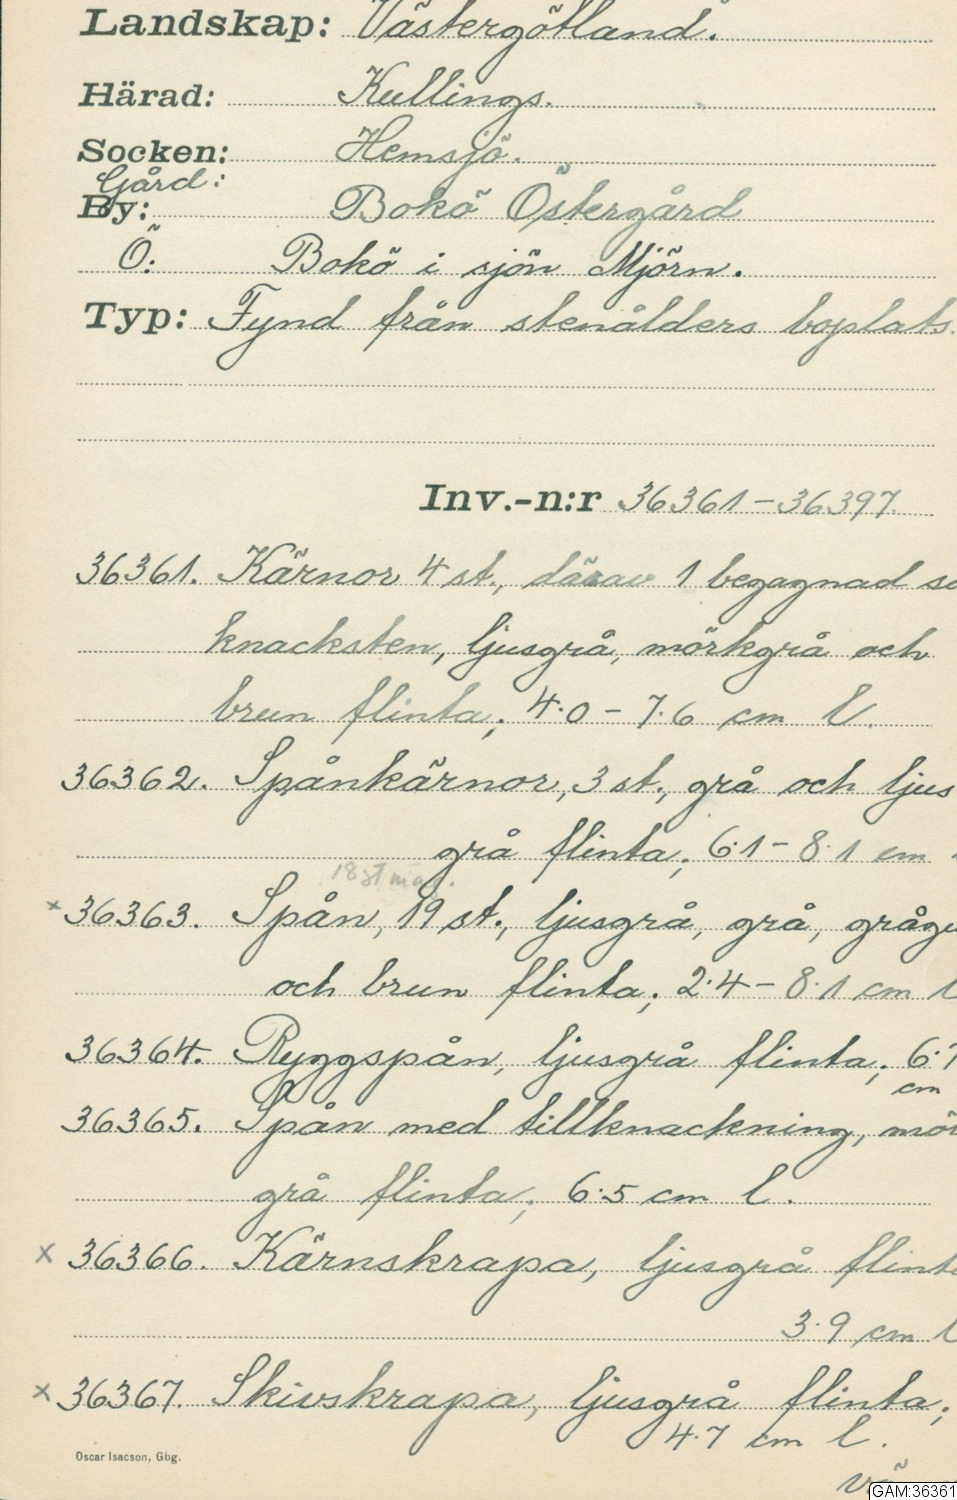 Landskap: Västergötland.
Härad: Kullings.
Socken: Hemsjö.
Gård:
By: Bokö Östergård
Ö: Bokö i sjön Mjörn.
Typ: Fynd från stenålders boplats.
Inv.-n:r 36361-36397.
36361. Kärnor 4 st., därav 1 begagnad so
knacksten, ljusgrå, mörkgrå och
brun flinta; 4.0-7.6 cm l.
36362. Spånkärnor, 3 st., grå och ljus
grå flinta; 6.1-8.1 cm
18 st mag.
x 36363. Spån, 19 st., ljusgrå, grå, grågu
och brun flinta; 2.4-8.1 cm l
36364. Ryggspån, ljusgrå flinta; 6.7
cm
36365. Spån med tillknackning, mör
grå flinta; 6.5 cm l.
x 36366. Kärnskrapa, ljusgrå flint
3.9 cm l
x 36367. Skivskrapa, ljusgrå flinta;
4.7 cm l.
Oscar Isacson, Gbg.
vä
GAM:36361